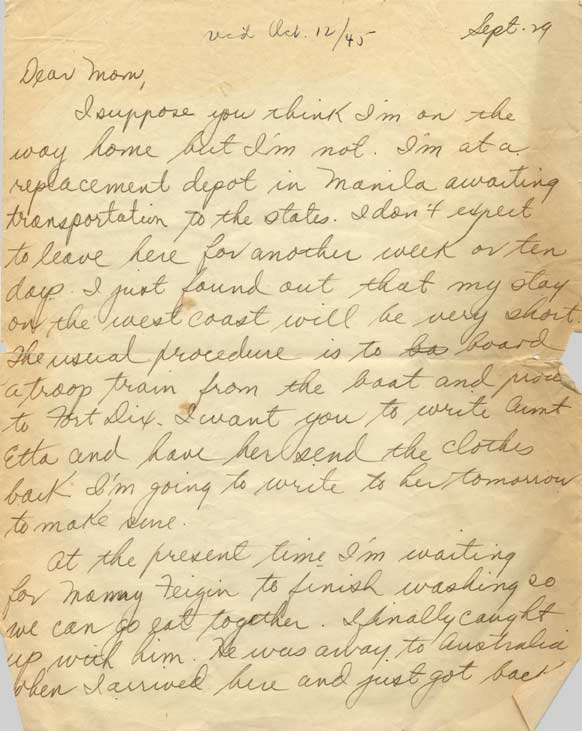 rec'd Oct. 12/45
Sept. 29
Dear Mom,
I suppose you think I'm on the
way home but I'm not. I'm at a
replacement depot in Manila awaiting
transportation to the states. I don't expect
to leave here for another week or ten
days. I just found out that my stay
on the west coast will be very short.
The usual procedure is to bo board
a troop train from the boat and
to Fort Dix. I want you to write Aunt
Etta and have her send the clothes
back. I'm going to write to her tomorrow
to make sure.
At the present time I'm waiting
for Manny Feigin to finish washing so
we can go eat together. I finally caught
up with him. He was away to Australia
when I arrived here and just got back